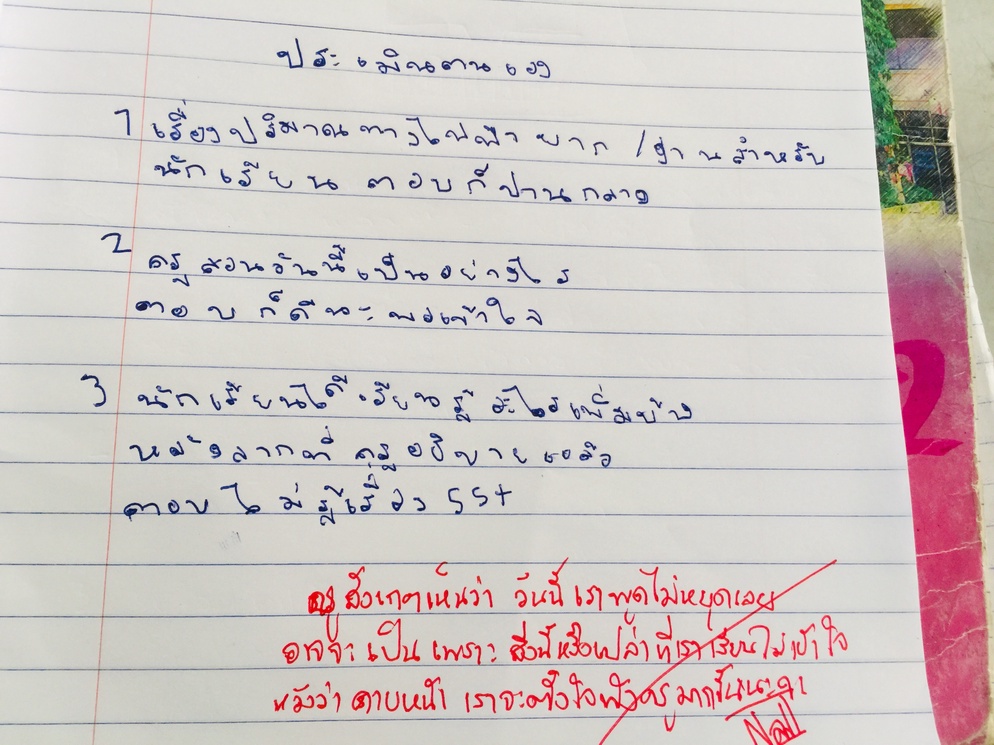 ประเมินตนเอง
1 เรื่องปริมาณทางไฟฟ้า ยาก/ง่าย สำหรับ
นักเรียน ตอบ ก็ปานกลาง
2 ครูสอนวันนี้เป็นอย่างไร
ตอบ ก็ดีนะ พอเข้าใจ
3 นักเรียนได้เรียนรู้อะไรเพิ่มบ้าง
หลังจากที่ครูอธิบาย
ตอบ ไม่รู้เรื่อง 55+
ครูสังเกตเห็นว่า วันนี้ เราพูดไม่หยุดเลย
อาจจะเป็นเพราะ สิ่งนี้หรือเปล่าที่เราเรียนไม่เข้าใจ
หวังว่า คาบหน้า เราจะตั้งใจฟังครูมากขึ้นนะคะ
2